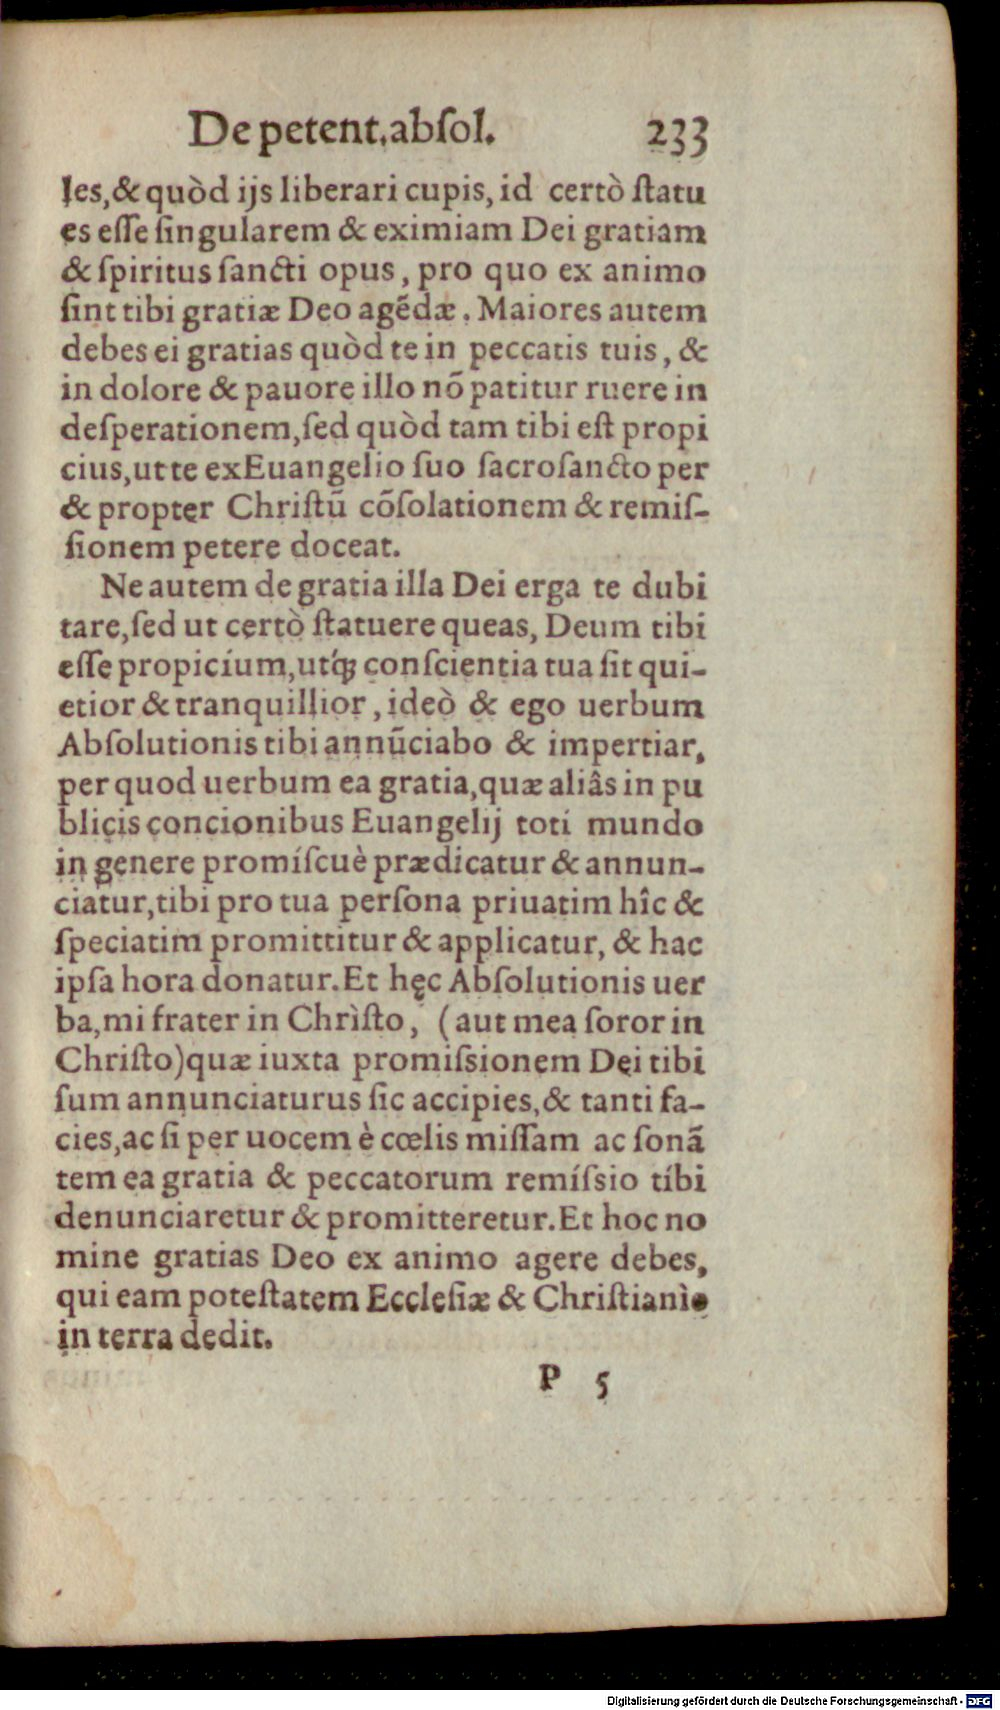 De petent.absol. 233
les,& quòd ijs liberari cupis, id certò statu
es esse singularem & eximiam Dei gratiam
& spiritus sancti opus, pro quo ex animo
sint tibi gratiæ Deo agẽdæ. Maiores autem
debes ei gratias quòd te in peccatis tuis, &
in dolore & pauore illo nõ patitur ruere in
desperationem, sed quòd tam tibi est propi
cius, ut te ex Euangelio suo sacrosancto per
& propter Christũ cõsolationem & remis-
sionem petere doceat.
Ne autem de gratia illa Dei erga te dubi
tare, sed ut certò statuere queas, Deum tibi
esse propicíum, utíq́ꝫ conscientia tua sit qui-
etior & tranquillior, ideò & ego uerbum
Absolutionis tibi annũciabo & impertiar,
per quod uerbum ea gratia, quæ aliâs in pu
blicis concionibus Euangelij toti mundo
in genere promíscuè prædicatur & annun-
ciatur, tibi pro tua persona priuatim hîc &
speciatim promittitur & applicatur, & hac
ipsa hora donatur. Et hęc Absolutionis uer
ba, mi frater in Chrìsto, (aut mea soror in
Christo) quæ iuxta promissionem Dei tibi
sum annunciaturus sic accipies, & tanti fa-
cies, ac si per uocem è cœlis missam ac sonã
tem ea gratia & peccatorum remíssio tíbi
denunciaretur & promitteretur. Et hoc no
mine gratias Deo ex animo agere debes,
qui eam potestatem Ecclesiæ & Christianìs
in terra dedit.
P 5
Digitalisierung gefördert durch die Deutsche Forschungsgemeinschaft - DFG